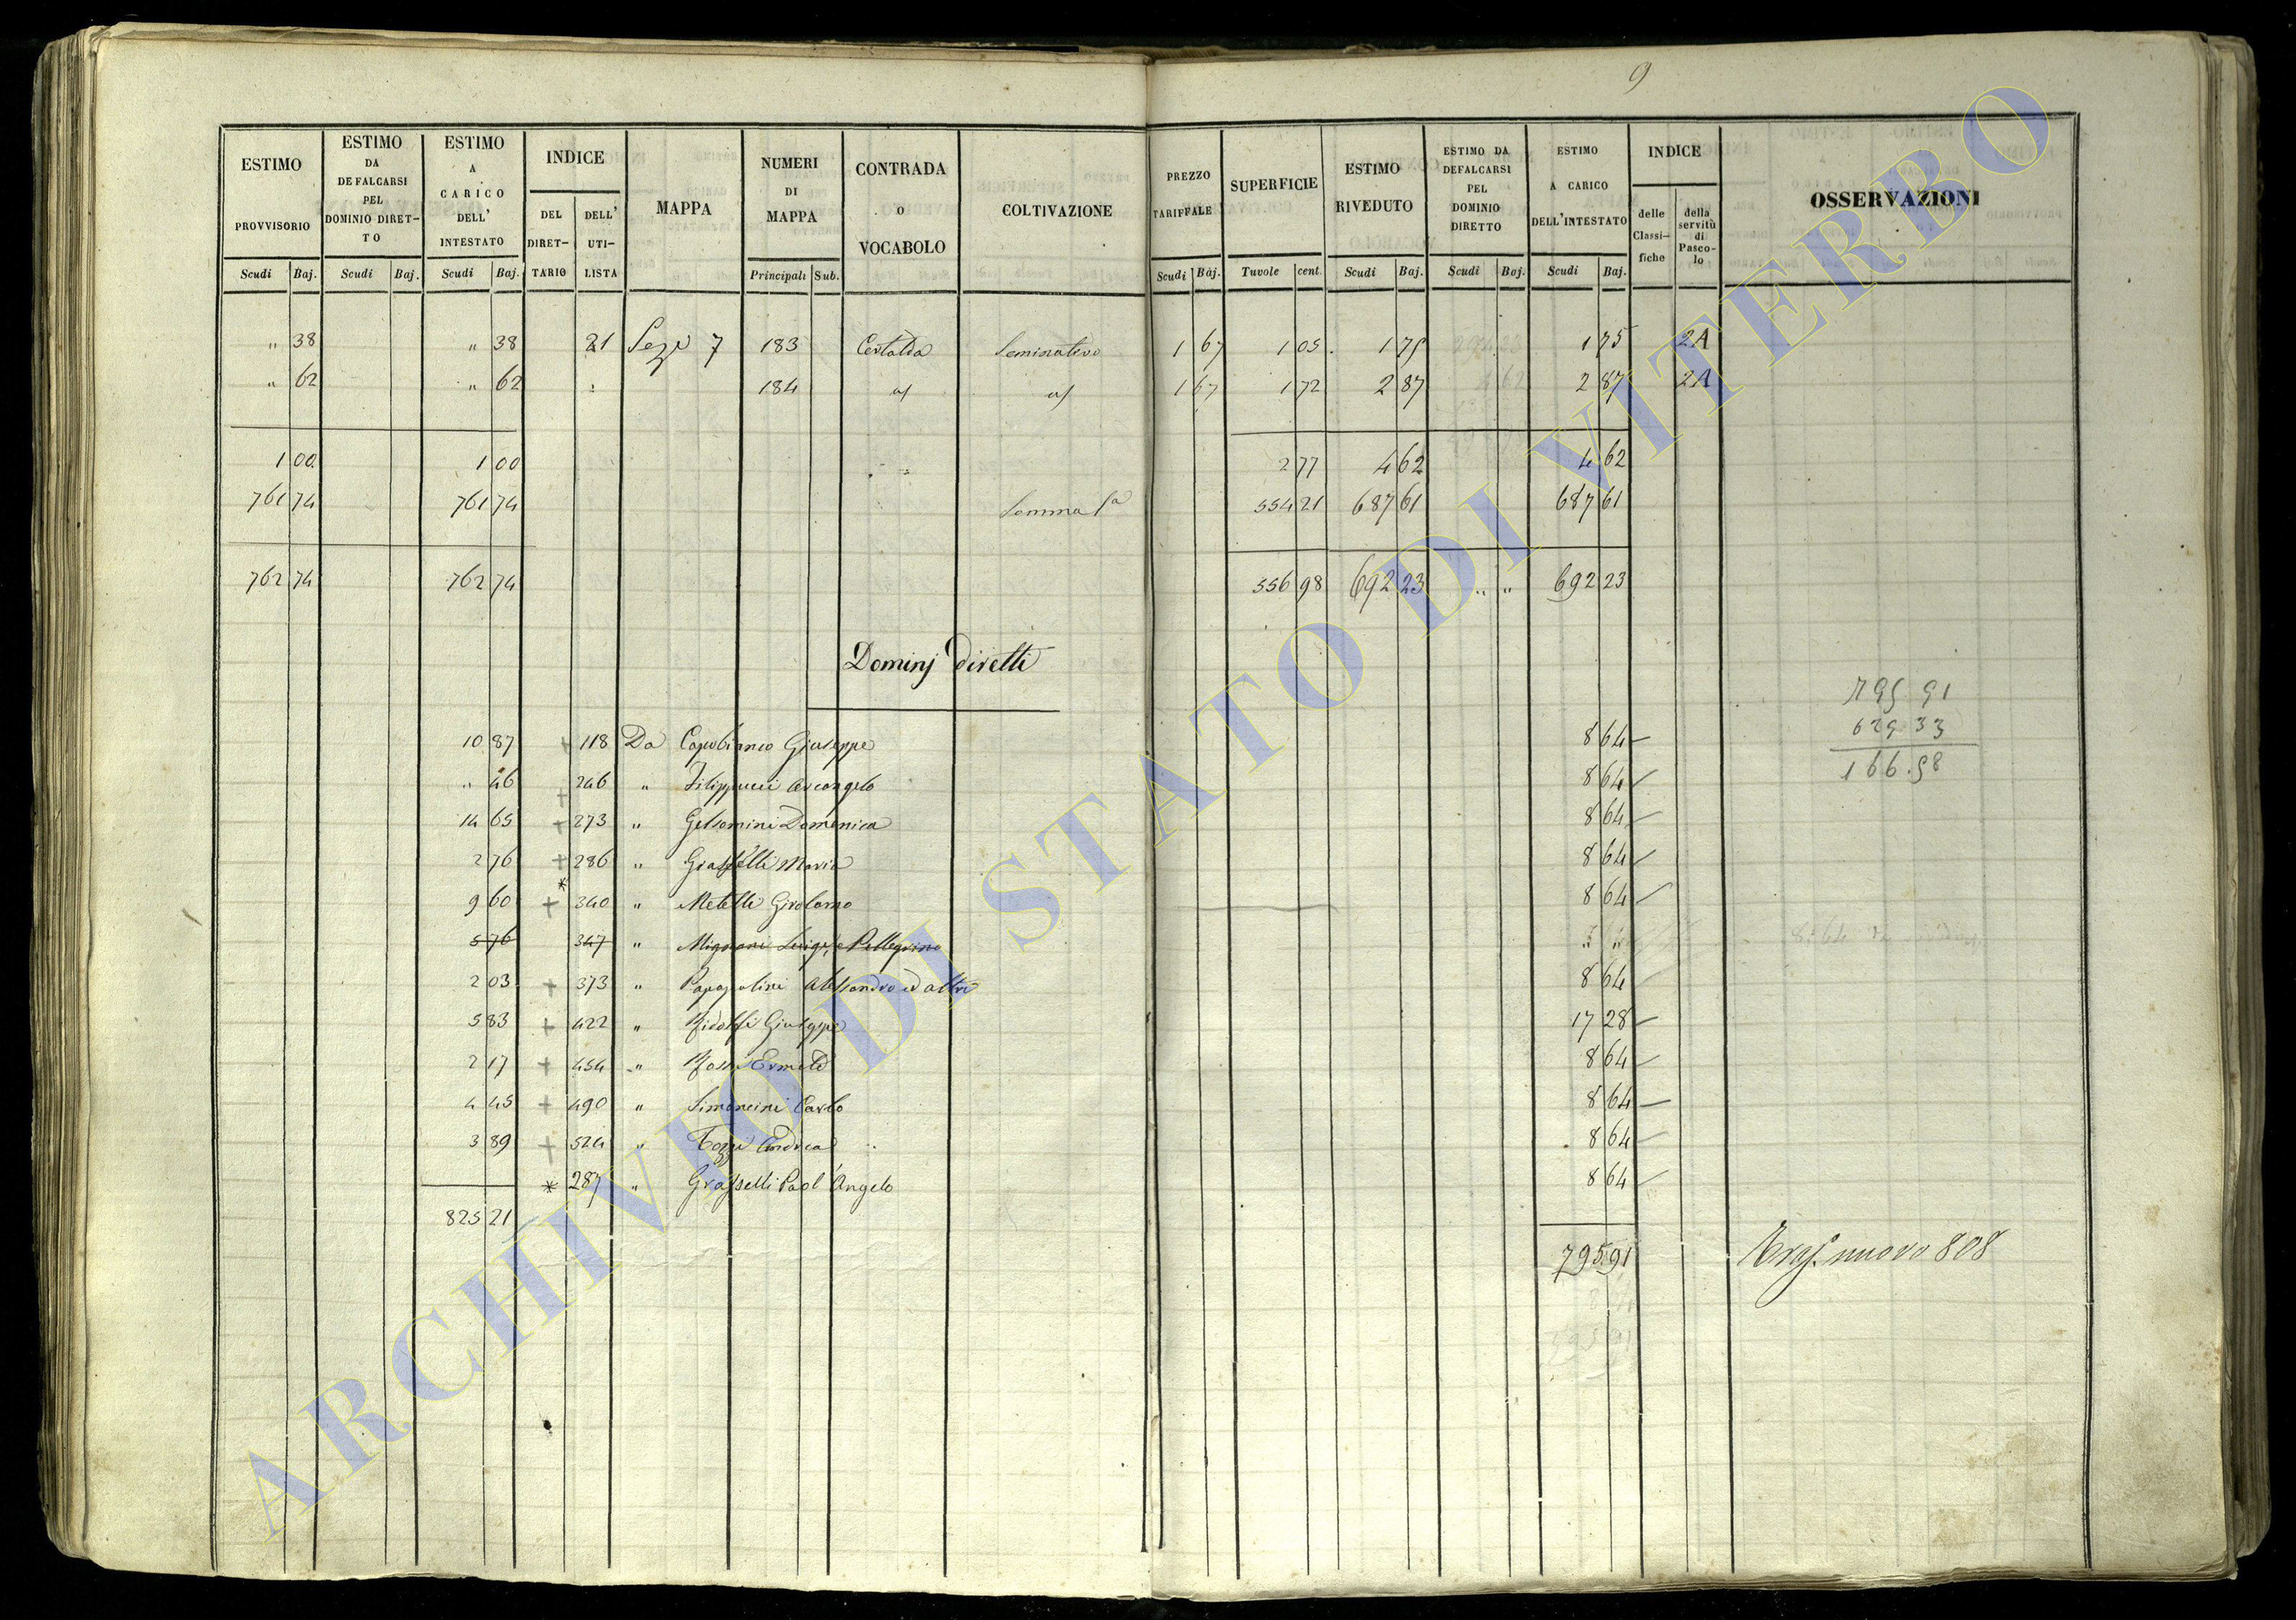 9
ESTIMO PROVVISORIO Scudi Baj.
ESTIMO DA DEFALCARSI PEL DOMINIO DIRET-TO Scudi Baj.
ESTIMO A CARICO DELL' INTESTATO Scudi Baj.
INDICE DEL DIRET-TARIO DELL' UTI-LISTA
MAPPA
NUMERI DI MAPPA Principali Sub.
CONTRADA O VOCABOLO
COLTIVAZIONE
PREZZO TARIFFALE Scudi Baj.
SUPERFICIE Tavole cent.
ESTIMO RIVEDUTO Scudi Baj.
ESTIMO DA DEFALCARSI PEL DOMINIO DIRETTO Scudi Baj.
ESTIMO A CARICO DELL'INTESTATO Scudi Baj.
INDICE delle Classi-fiche della servitù di Pasco-lo
OSSERVAZIONI
" 38 " 38 21 Sez. 7 183 Seminativo 1 67 1 05 1 75 1 75 2A
" 62 " 62 " 184 1 67 1 72 2 87 2 87 2A
1 00 1 00 2 77 4 62 4 62
761 74 761 74 Somma 554 21 687 61 687 61
762 74 762 74 556 98 692 23 " " 692 23
Dominj diretti
10 87 + 118 Da Capobianco Giuseppe 8 64
" 46 + 246 " Filippucci Arcangelo 8 64
14 65 + 273 " Gelsomini Domenica 8 64
2 76 + 286 " Grasselli Maria 8 64
9 60 + * 340 " Metelli Girolamo 8 64
5 76 347 " Mignani Luigi, e Pellegrino " "
2 03 + 373 " Alessandro ed altri 8 64
5 83 + 422 " Ridolfi Giuseppe 17 28
2 17 + 454 " Rossi 8 64
4 45 + 490 " Simoncini Carlo 8 64
3 89 + 524 " Tozzi Andrea 8 64
* 287 " Grasselli Paol'Angelo 8 64
825 21
795 91
795 91
629 33
166.58
Trasp. nuovo 808
ARCHIVIO DI STATO DI VITERBO